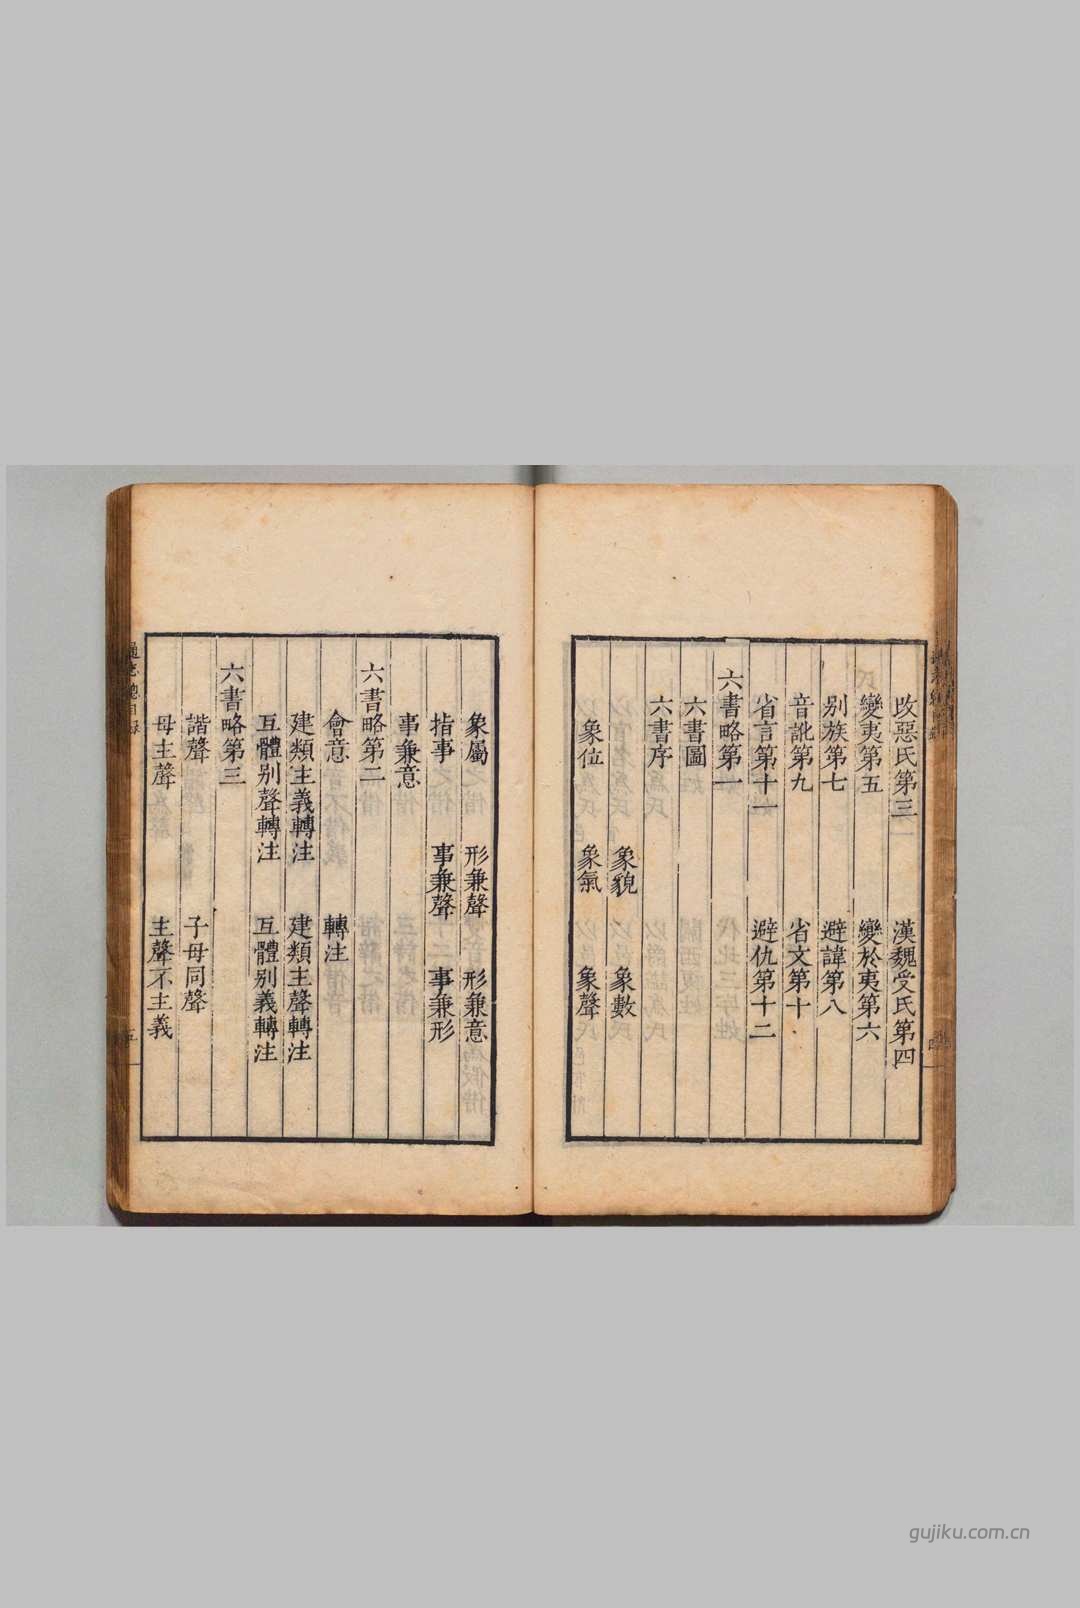 改惡氏第三 漢魏受氏第四
變夷第五 變於夷第六
别族第七 避諱第八
音訛第九 省文第十
省言第十一 避仇第十二
六書略第一
六書圖
六書序
象貌 象數
象位 象氣 象聲
象屬 形兼聲 形兼意
指事 事兼聲 事兼形
事兼意
六書略第二
會意 轉注
建類主義轉注 建類主聲轉注
互體别聲轉注 互體别義轉注
六書略第三
諧聲 子母同聲
母主聲 主聲不主義
gujiku.com.cn